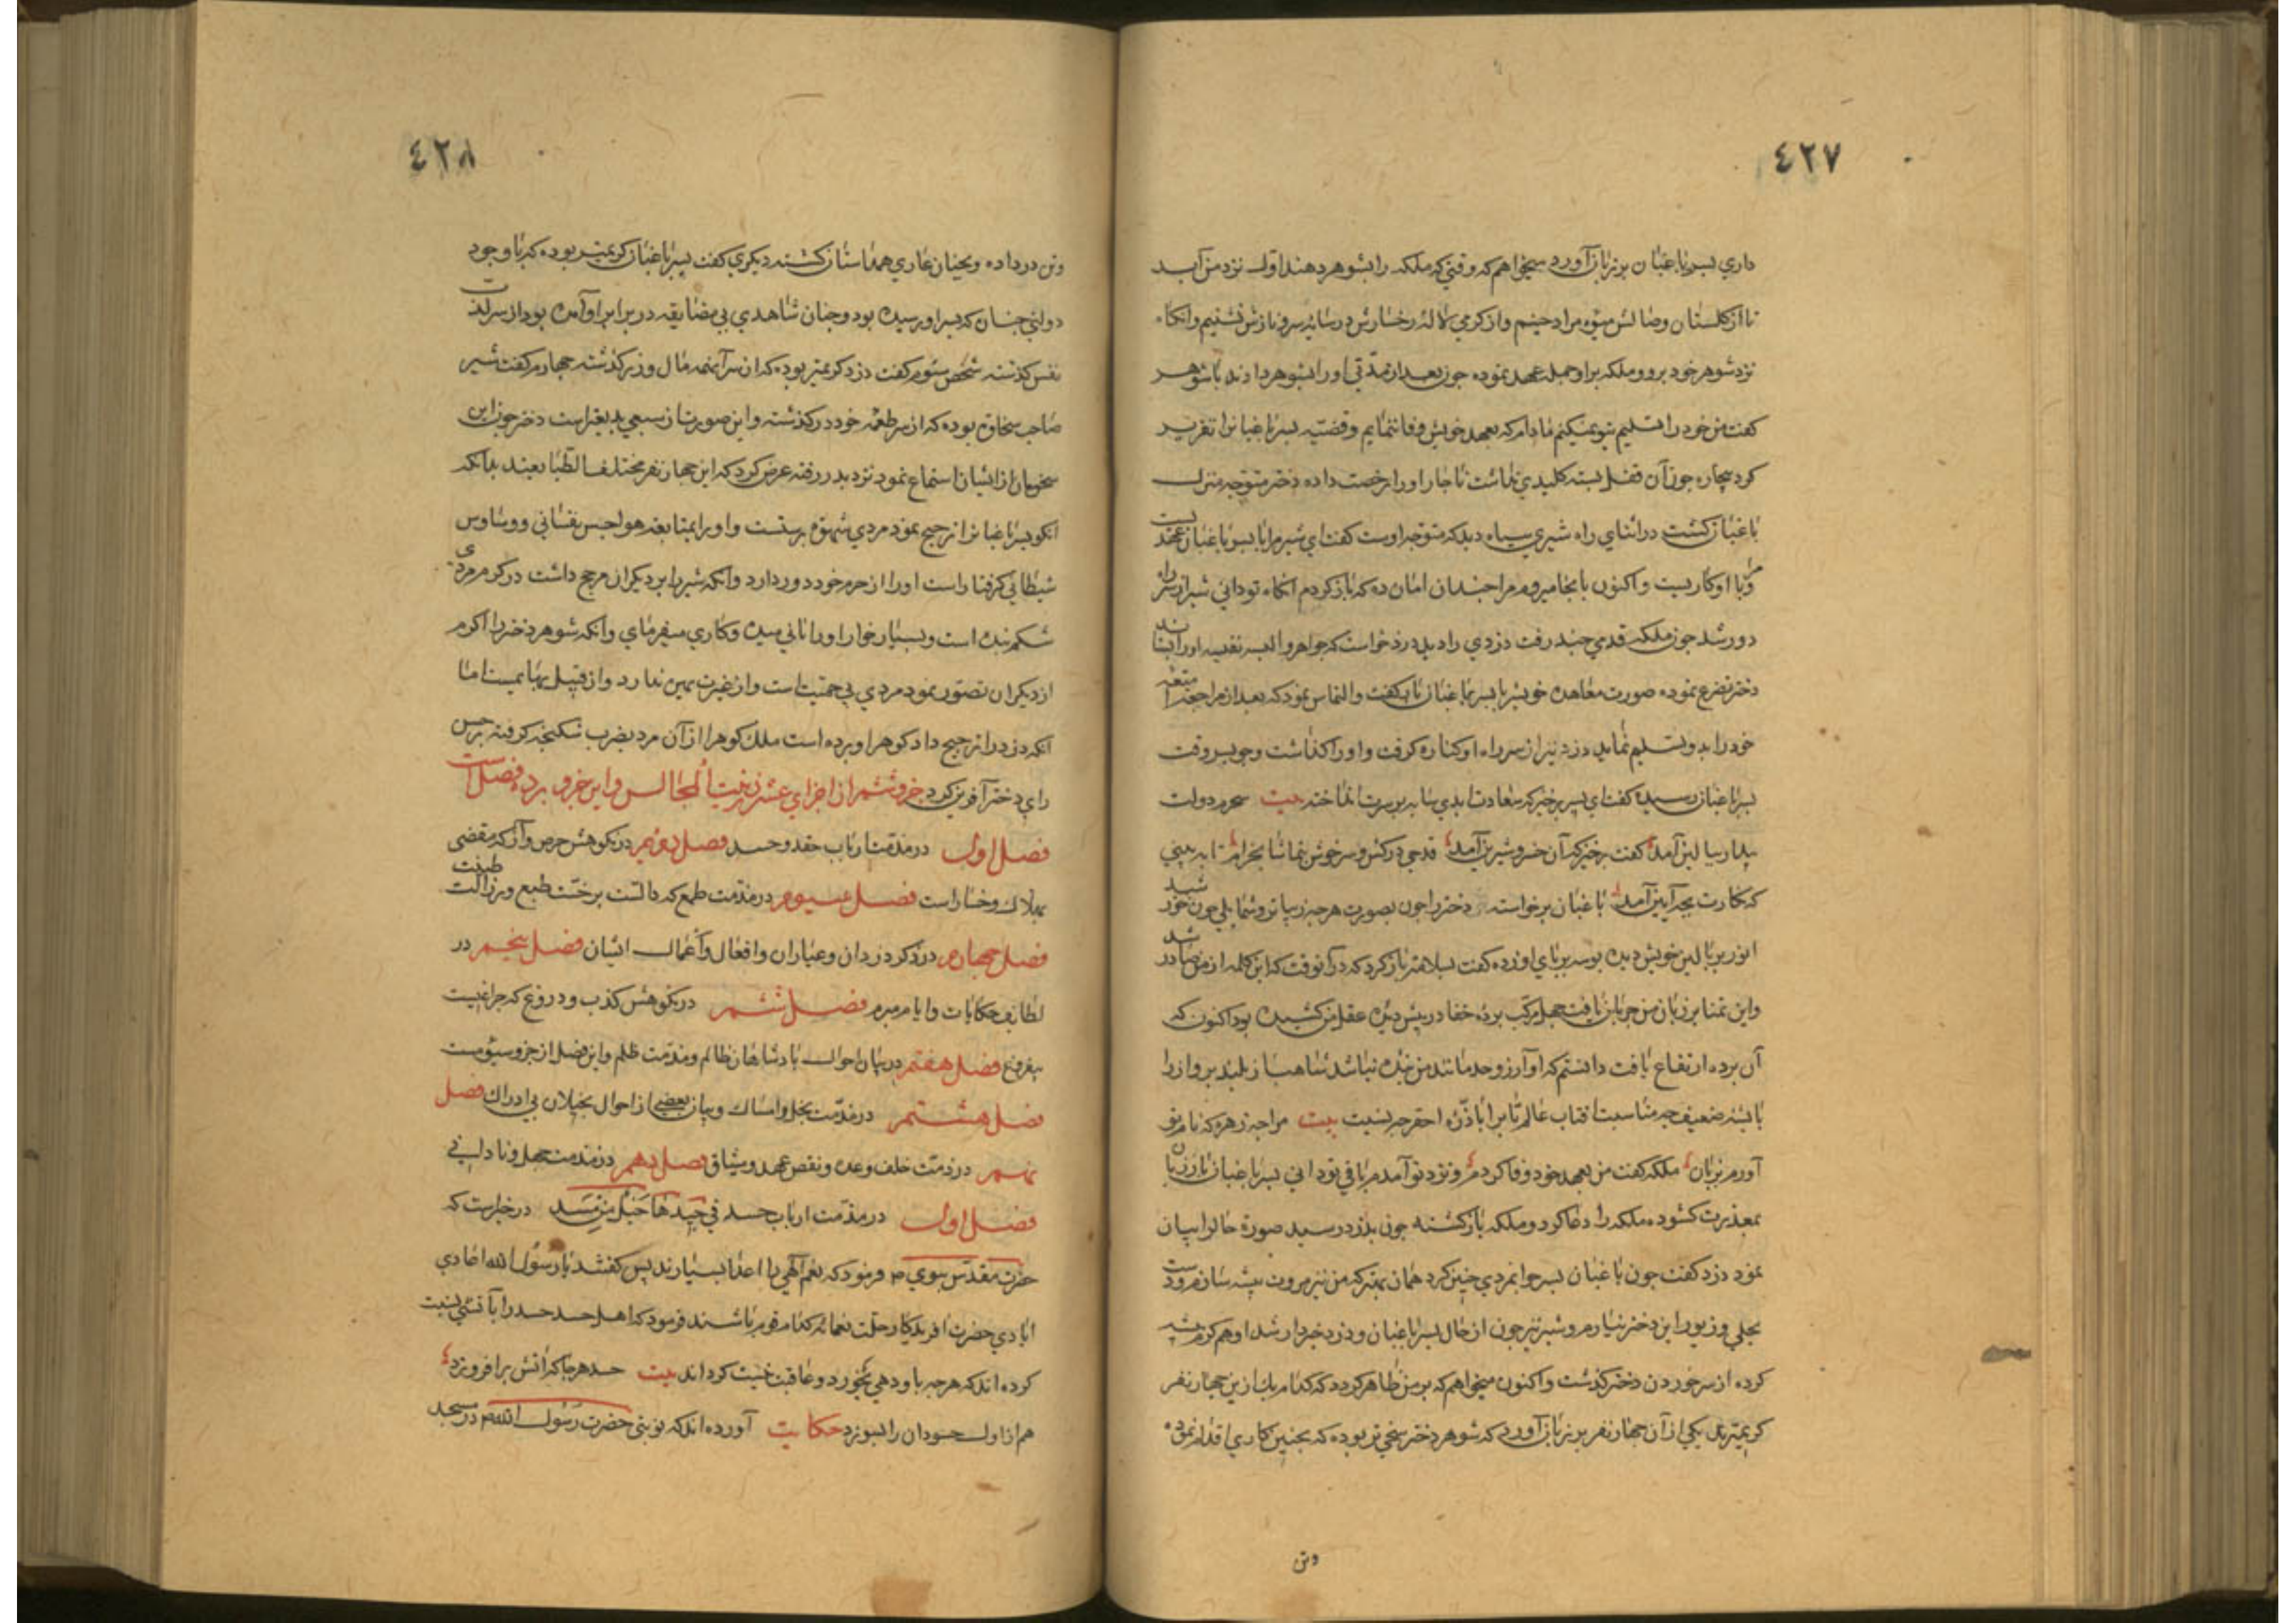 ٤٢٧
داري پسر باغبان بر زبان آورد ميخواهم كه وقتي كه ملكه را بشوهر دهند اول نزد من آيد
تا از كلستان وصالش ميوه مراد چينم واز كرمي لاله رخسارش در سايه سرو نازش نشينم وانكاه
نزد شوهر خود برو وملكه برا وجمله عهد نموده چون بعد از مدتي اورا بشوهر دادند با شوهر
كفت من خود را تسليم تو نميكنم مادام كه بعهد خويش وفا ننمايم وقضيه پسر باغبانرا تقرير
كرد بيچاره چون آن قفل بسته كليدي نداشت ناچار اورا رخصت داده دختر متوجه منزل
باغبان كشت در اثناي راه شيري سياه ديد كه متوجه اوست كفت اي شير مرا با پسر باغبان عهد يست
ومرا با او كاريست واكنون بانجا ميروم مرا چندان امان ده كه باز كردم انكاه تو داني شير از سر راه
دور شد چون ملكه قدمي چند رفت دزدي را ديد درخواست كه جواهر والبسه نفيسه اورا بستاند
دختر تضرع نموده صورت معاهده خويش با پسر باغبان باو كفت والتماس نمود كه بعد از مراجعت امتعه
خود را بدو تسليم نمايد دزد نيز از سر راه او كناره كرفت واورا كذاشت وچو بسر وقت
پسر باغبان رسيد كفت اي پسر برخيز كه سعادت ابدي سايه بر سرت انداخته بيت سحرم دولت
بيدار ببالين آمد كفت برخيز كه آن خسرو شيرين آمد قدحي دركش وسرخوش بتماشا بخرام تا ببيني
كه نكارت بچه آيين آمد باغبان برخواسته دختر را چون بصورت هرچه زيباتر وشمايلي چون خورشيد
انور بر بالين خويش ديده بوسه بر پاي او زده كفت بسلامت باز كرد كه در آنوقت كه اين كلمه از من صادر شد
واين تمنا بر زبان من جريان يافت جهل مركب پرده خفا در پيش ديده عقل من كشيده بود اكنون كه
آن پرده ارتفاع يافت دانستم كه او آرزو حد مانند من بنده نباشد شاهباز بلند پرواز را
با پشه ضعيف چه مناسبت آفتاب عالمتاب را با ذره احقر چه نسبت بيت مرا چه زهره كه نام تو
آورم بزبان ملكه كفت من بعهد خود وفا كردم ونزد تو آمدم باقي تو داني پسر باغبان باز زبان
بمعذرت كشوده ملكه را دعا كرد وملكه باز كشته چون بدزد رسيد صورة حالرا بيان
نمود دزد كفت چون باغبان پسر جوانمردي چنين كرد همان بهتر كه من نيز مروت پيشه سازم ودست
بحلي وزيور اين دختر نيارم وشير نيز چون از حال پسر باغبان ودزد خبردار شد او هم كرم پيشه
كرده از سر خوردن دختر كذشت واكنون ميخواهم كه بر من ظاهر كردد كه كدام يك ازين چهار نفر
كريمترند يكي از آن چهار نفر بر زبان آورد كه شوهر دختر سخي تر بوده كه بچنين كاري اقدام نموده
وتن
٤٢٨
وتن در داده وبچنان عاري همداستان كشته ديكري كفت پسر باغبان كريمتر بوده كه با وجود
دولتي چنان كه بسر او رسيده بود وچنان شاهدي بي مضايقه در برابر او آمده بود از سر لذت
نفس كذشته شخص سيوم كفت دزد كريمتر بوده كه از سر آنهمه مال وزر كذشته چهارم كفت شير
صاحب سخاوة بوده كه از سر طعمه خود در كذشته واين صورت از سبعي بديعتر است دختر چون اين
سخنان از ايشان استماع نمود نزد پدر رفته عرض كرد كه اين چهار نفر مختلف الطبايعند بدانكه
انكو پسر باغبانرا ترجيح نمود مردي شهوة پرستست واورا بمتابعة هواجس نفساني ووساوس
شيطاني كرفتار است اورا از حرم خود دور دارد وانكه شير را بر ديكران مرجح داشت در كوم مردي
شكم بنده است وبسيار خوار اورا ناني ميده وكاري ميفرماي وانكه شوهر دختر را اكرم
از ديكران تصور نمود مردي بي حميت است واز غيرت بهره ندارد واز قبيل بهايمست اما
آنكه دزد را ترجيح داد كوهر او برده است ملك كوهر را از آن مرد بضرب شكنجه كرفته بر حسن
راي دختر آفرين كرد جزو ششم از اجزاي عشره زينت المجالس واين جزو بر ده فصلست
فصل اول در مذمت ارباب حقد وحسد فصل دويم در نكوهش حرص وآز كه مفضي
بهلاك وخسار است فصل سيوم در مذمت طمع كه دالست بر خست طبع ورزالت طينت
فصل چهارم در ذكر دزدان وعياران وافعال واعمال ايشان فصل پنجم در
لطايف حكايات وايام مبرم فصل ششم در نكوهش كذب ودروغ كه چراغيست
بيفروغ فصل هفتم در بيان احوال پادشاهان ظالم ومذمت ظلم واين فصل از جزو سيومست
فصل هشتم در مذمت بخل وامساك وبيان بعضي از احوال بخيلان بي ادراك فصل
نهم در مذمت خلف وعده ونقض عهد وميثاق فصل دهم در مذمت جهل ونادانى
فصل اول در مذمت ارباب حسد في جيدها حبل من مسد در خبر است كه
حضرت مقدس نبوي ص فرمود كه نعم الهي را اعدا بسيارند پس كفتند يا رسول الله اعادي
ايادي حضرت آفريدكار جلت نعمائه كدام قوم باشند فرمود كه اهل حسد حسد را بآتشي نسبت
كرده اند كه هرچه يابد همي بخورد وعاقبت خبيث كرداند بيت حسد هرجا كه آتش برافروزد
هم از اول حسودان را بسوزد حكايت آورده اند كه نوبتي حضرت رسول الله ص در مسجد